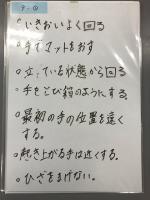 ・いきおいよく回る
・手でマットをおす
・立っている状態から回る
・手をとび箱のようにする。
・最初の手の位置を遠く
する。
・起き上がる手は近くする。
・ひざをまげない。